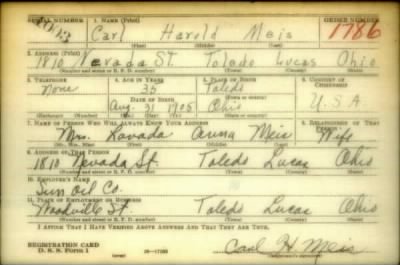 SERIAL NUMBER 1. NAME (Print) ORDER NUMBER
Carl Harold Meis 1786
(First) (Middle) (Last)
2. ADDRESS (Print)
1810 Nevada St. Toledo Lucas Ohio
(Number and street or R. F. D. number) (Town) (County) (State)
3. TELEPHONE 4. AGE IN YEARS 5. PLACE OF BIRTH 6. COUNTRY OF CITIZENSHIP
None 35 Toledo
DATE OF BIRTH
Aug. 31 1905 Ohio U.S.A
7. NAME OF PERSON WHO WILL ALWAYS KNOW YOUR ADDRESS 8. RELATIONSHIP OF THAT PERSON
Mrs. Lovada Anna Meis Wife
(Mr., Mrs., Miss) (First) (Middle) (Last)
9. ADDRESS OF THAT PERSON
1810 Nevada St. Toledo Lucas Ohio
(Number and street or R. F. D. number) (Town) (County) (State)
10. EMPLOYER'S NAME
Sun Oil Co.
11. PLACE OF EMPLOYMENT OR BUSINESS
Woodville St Toledo Lucas Ohio
(Number and street or R. F. D. number) (Town) (County) (State)
I AFFIRM THAT I HAVE VERIFIED ABOVE ANSWERS AND THAT THEY ARE TRUE.
REGISTRATION CARD
D. S. S. Form 1 Carl H. Meis
(Registrant's signature)